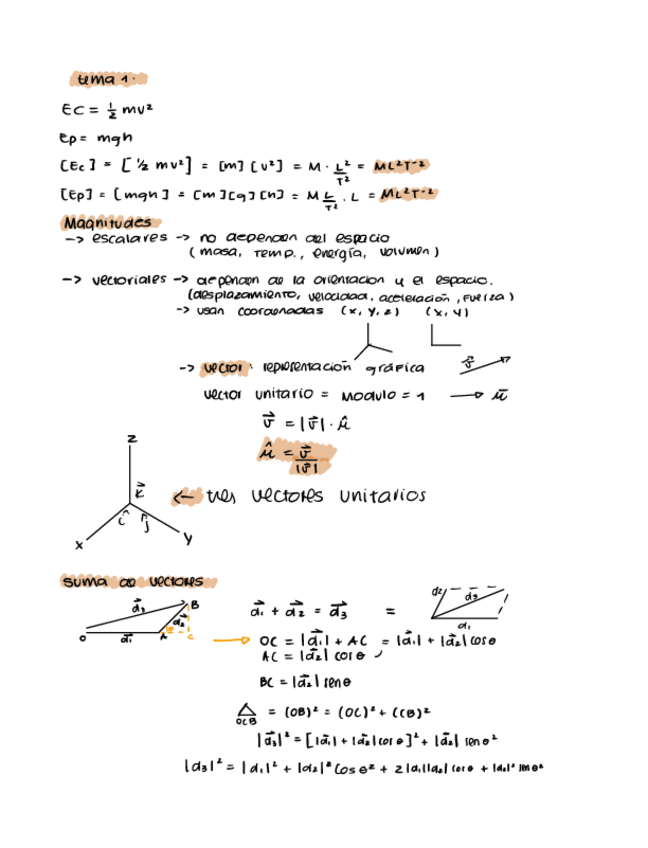 tema 1.
EC = ½ mv²
Ep = mgh
[Ec] = [½ mv²] = [m] [v²] = M · L²/T² = ML²T⁻²
[Ep] = [mgh] = [m][g][h] = M L/T² · L = ML²T⁻²
Magnitudes
-> escalares -> no dependen del espacio
(masa, temp., energía, volumen)
-> vectoriales -> dependen de la orientacion y el espacio.
(desplazamiento, velocidad, aceleración, fuerza)
-> usan coordenadas (x, y, z) (x, y)
-> vector: representación gráfica v⃗
vector unitario = modulo = 1 → ū
v⃗ = |v⃗| · û
û = v⃗/|v⃗|
z
k⃗ <- tres vectores unitarios
î ĵ
x y
suma de vectores
d⃗₃ B d⃗₁ + d⃗₂ = d⃗₃ = d₂ d₃
d⃗₂ d₁
O d⃗₁ A C → OC = |d⃗₁| + AC = |d⃗₁| + |d⃗₂| cos θ
AC = |d⃗₂| cos θ
BC = |d⃗₂| sen θ
△ OCB = (OB)² = (OC)² + (CB)²
|d⃗₃|² = [|d⃗₁| + |d⃗₂| cos θ]² + |d⃗₂| sen θ²
|d₃|² = |d₁|² + |d₂|² cos θ² + 2|d₁||d₂| cos θ + |d₂|² sen θ²